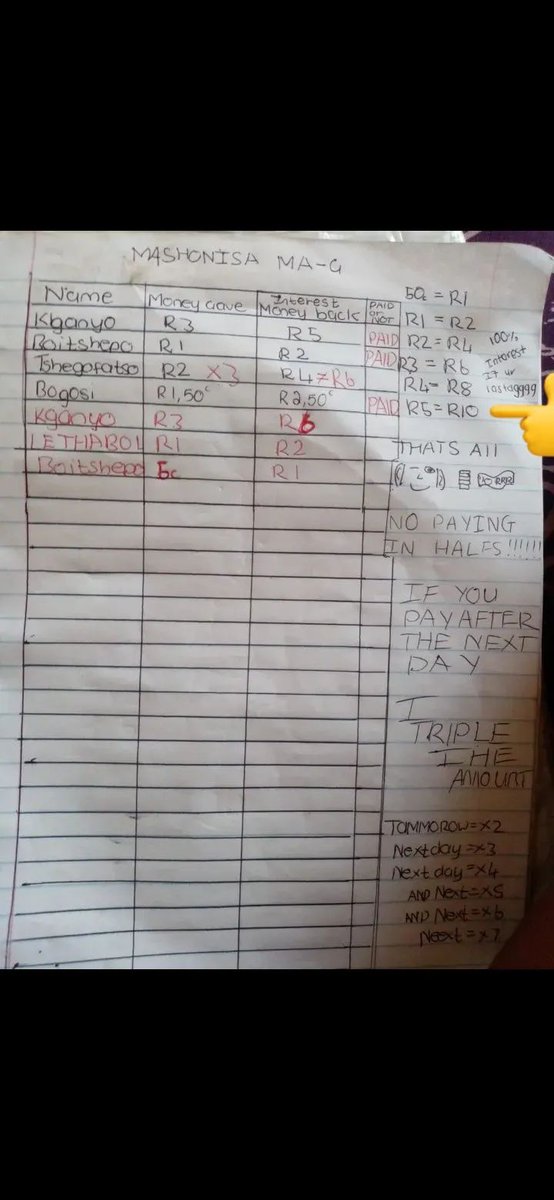 MASHONISA MA-G
Name Money Gave Interest Money back PAID OR NOT
Kganyo R3 R5
Boitshepo R1 R2 PAID
Tshegofatso R2 X3 R4 ≠ R6 PAID
Bogosi R1,50c R2,50c PAID
Kganyo R3 R6
LETHABOI R1 R2
Boitshepo 5c R1
50c = R1
R1 = R2
R2 = R4
R3 = R6
R4 = R8
R5 = R10
100%
Interest
If ur
lastagggg
THATS All
NO PAYING
IN HALFS!!!!!!
IF YOU
PAY AFTER
THE NEXT
DAY
I
TRIPLE
THE
AMOUNT
TOMMOROW = X2
Next day = X3
Next day = X4
AND Next = X5
AND Next = X6
Neext = X7